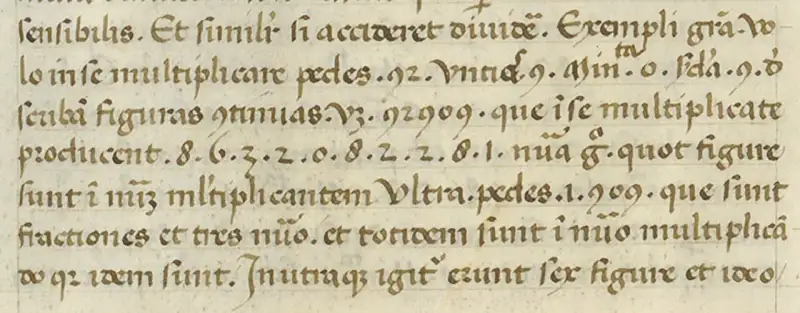 sensibilis. Et simili si accideret diuidē. Exempli grā. Vo
lo in se multiplicare pedes .92. Vntias .9. Minta .0. scda .9.
scribā figuras 9tinuas. vꝫ. 92909. que ī se multiplicate
producent .8.6.3.2.0.8.2.2.8.1. nūa gͦ. quot figure
sunt ī nūꝫ ml'tiplicantem Vltra .pedes .1. 909. que sunt
fractiones et tres nūo. et totidem sunt ī nūo multiplicā
do qꝛ idem sunt. In utraqꝫ igit᾽ erunt sex figure et ideo